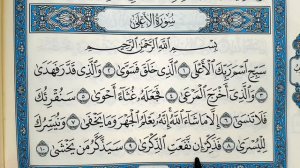 سُورَةُ الأَعْلَى
بِسْمِ اللَّهِ الرَّحْمَٰنِ الرَّحِيمِ
سَبِّحِ اسْمَ رَبِّكَ الْأَعْلَى ١ الَّذِي خَلَقَ فَسَوَّىٰ ٢ وَالَّذِي قَدَّرَ فَهَدَىٰ
٣ وَالَّذِي أَخْرَجَ الْمَرْعَىٰ ٤ فَجَعَلَهُ غُثَاءً أَحْوَىٰ ٥ سَنُقْرِئُكَ
فَلَا تَنسَىٰ ٦ إِلَّا مَا شَاءَ اللَّهُ إِنَّهُ يَعْلَمُ الْجَهْرَ وَمَا يَخْفَىٰ ٧ وَنُيَسِّرُكَ
لِلْيُسْرَىٰ ٨ فَذَكِّرْ إِن نَّفَعَتِ الذِّكْرَىٰ ٩ سَيَذَّكَّرُ مَن يَخْشَىٰ ١٠